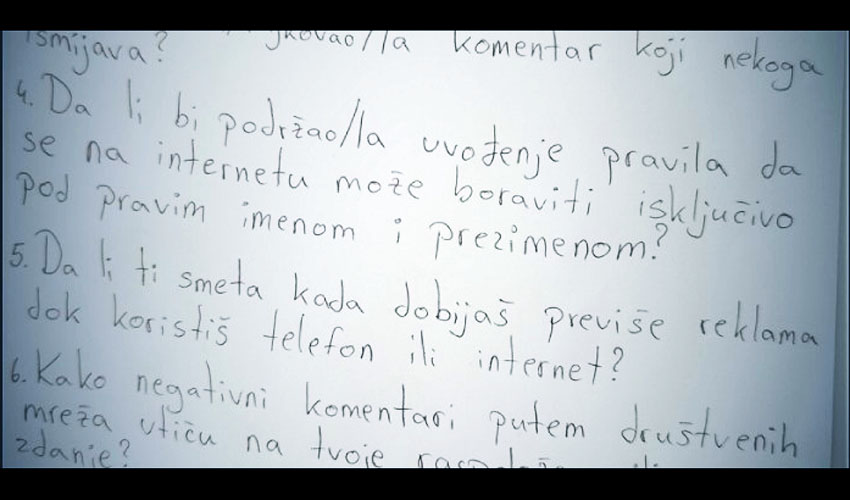 ismijava? komentar koji nekoga
4. Da li bi podržao/la uvođenje pravila da
se na internetu može boraviti isključivo
pod pravim imenom i prezimenom?
5. Da li ti smeta kada dobijaš previše reklama
dok koristiš telefon ili internet?
6. Kako negativni komentari putem društvenih
mreža utiču na tvoje
zdanje?